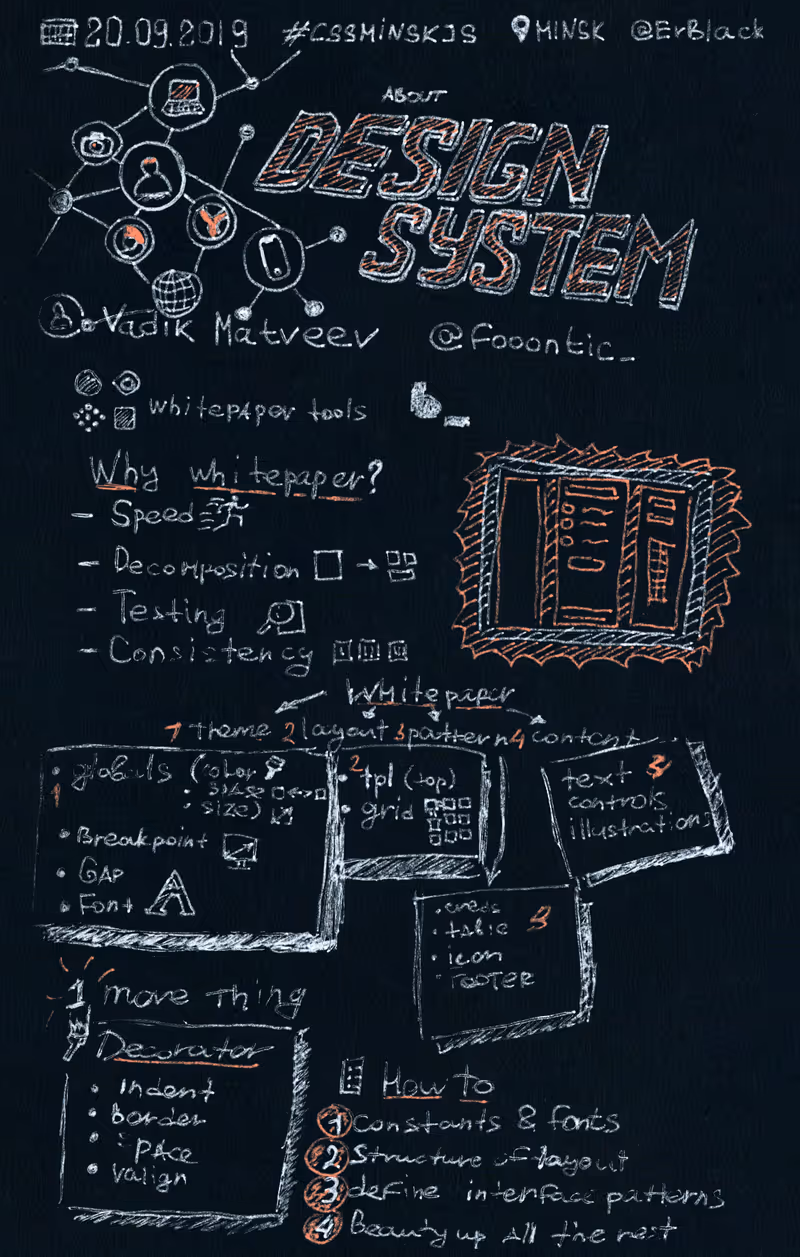 20.09.2019 #CSSMINSKJS MINSK @ErBlack
ABOUT
DESIGN
SYSTEM
Vadik Matveev @fooontic_
whitepaper tools b_
Why whitepaper?
- Speed
- Decomposition
- Testing
- Consistency
Whitepaper
1 theme 2 layout 3 pattern 4 content
1
• globals (color
• space
• size)
• Breakpoint
• GAP
• Font A
2
• tpl (top)
• grid
text 3
controls
illustrations
3
• cards
• table
• icon
• FOOTER
1 move Thing
Decorator
• indent
• border
• space
• valign
How to
1 constants & fonts
2 Structure of layout
3 define interface patterns
4 Beauty up all the rest